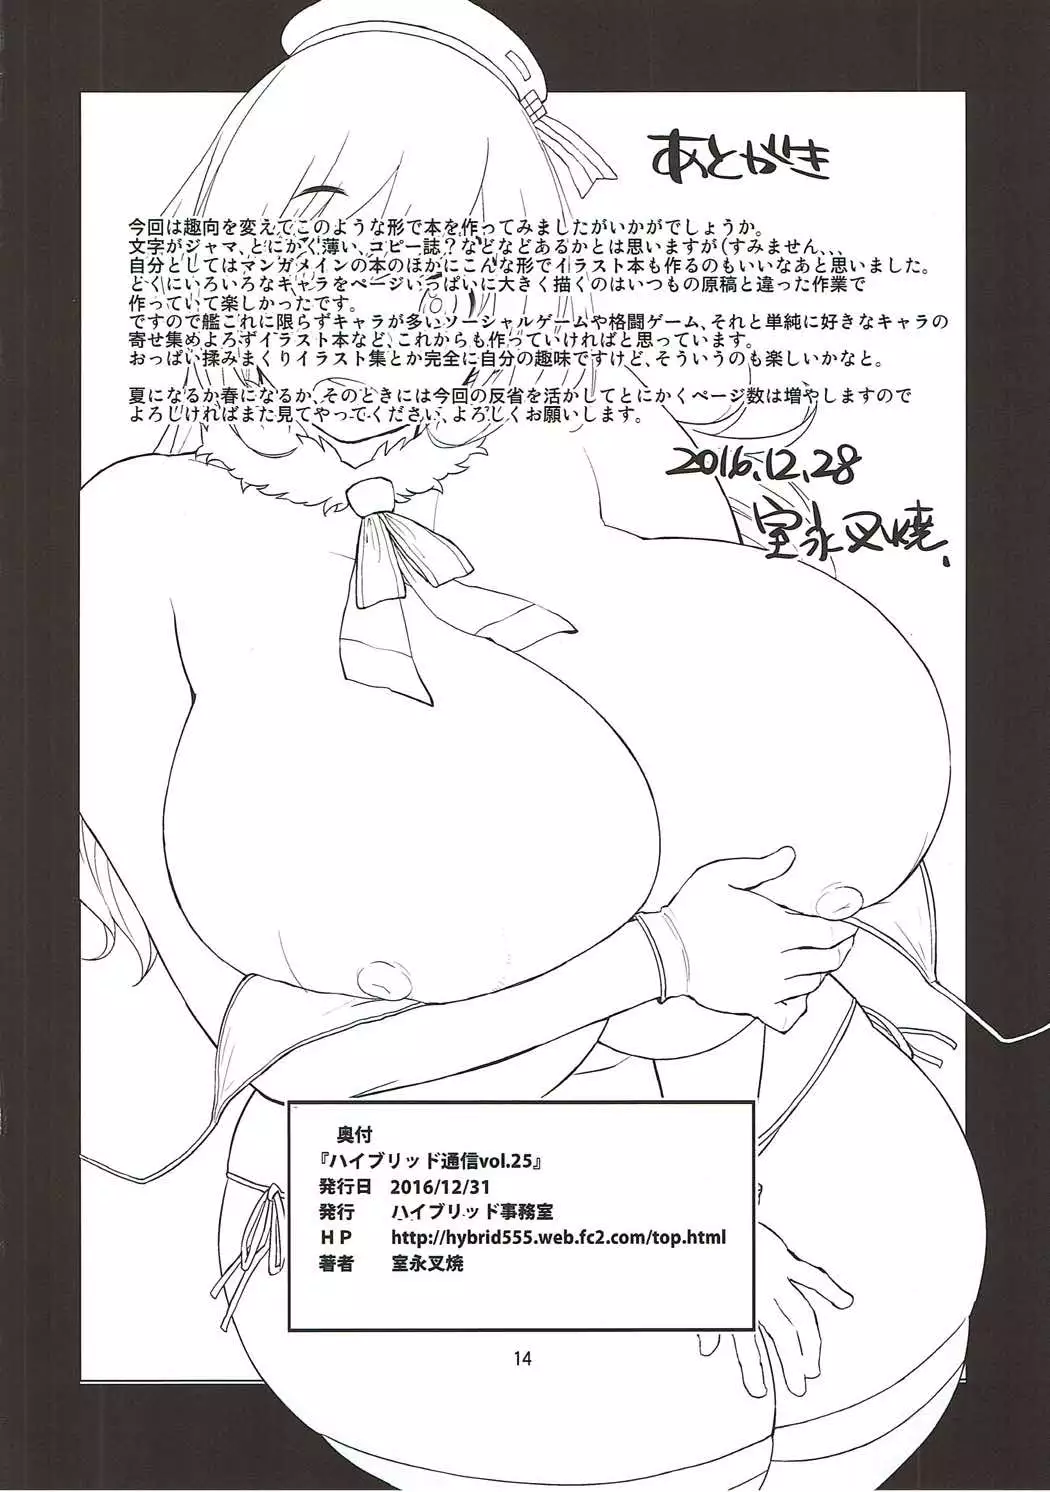 あとがき
今回は趣向を変えてこのような形で本を作ってみましたがいかがでしょうか。
文字がジャマ、とにかく薄い、コピー誌？などなどあるかとは思いますが(すみません、、、
自分としてはマンガメインの本のほかにこんな形でイラスト本も作るのもいいなあと思いました。
とくにいろいろなキャラをページいっぱいに大きく描くのはいつもの原稿と違った作業で
作っていて楽しかったです。
ですので艦これに限らずキャラが多いソーシャルゲームや格闘ゲーム、それと単純に好きなキャラの
寄せ集めよろずイラスト本など、これからも作っていければと思っています。
おっぱい揉みまくりイラスト集とか完全に自分の趣味ですけど、そういうのも楽しいかなと。
夏になるか春になるか、そのときには今回の反省を活かしてとにかくページ数は増やしますので
よろしければまた見てやってください、よろしくお願いします。
2016.12.28
室永叉焼.
奥付
『ハイブリッド通信vol.25』
発行日 2016/12/31
発行 ハイブリッド事務室
ＨＰ http://hybrid555.web.fc2.com/top.html
著者 室永叉焼
14